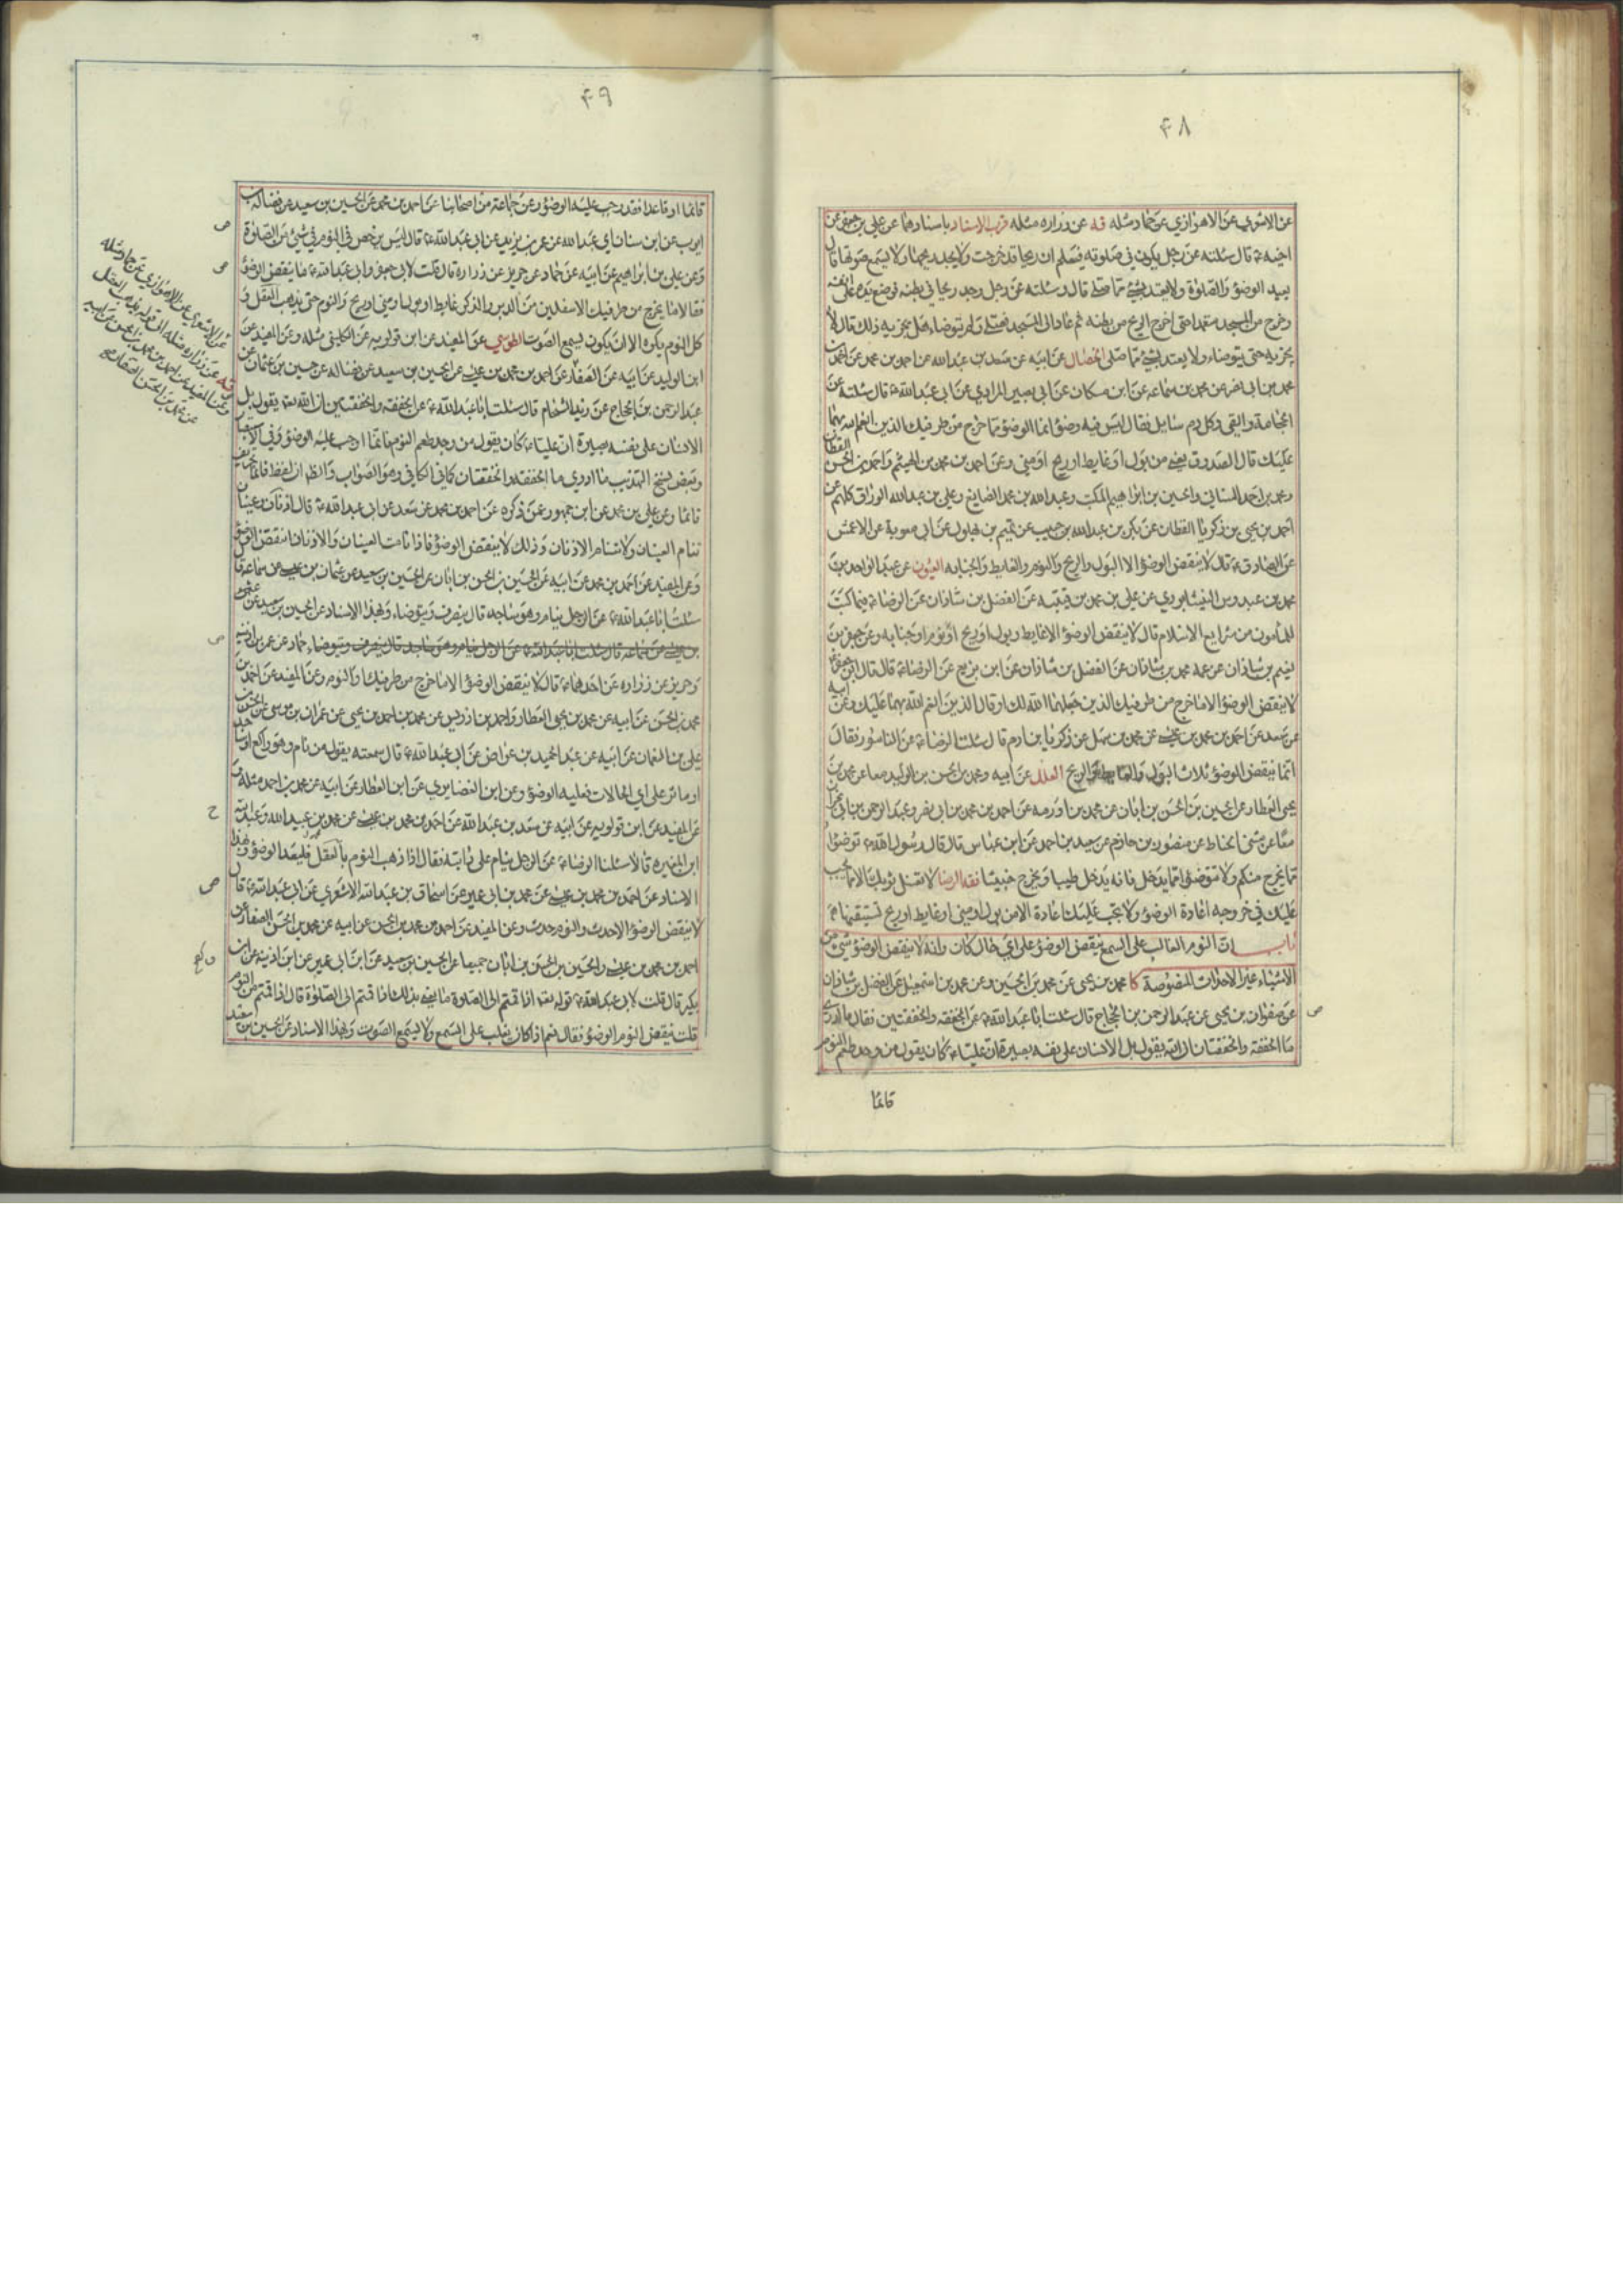 ۴۸
عن الاشعري عن الاهوازي عن حماد مثله فيه عن زراره مثله قرب الاسناد باسنادهما عن علي بن جعفر عن
اخيه ع قال سئلته عن رجل يكون في صلوته فيعلم ان ريحا قد خرجت ولا يجد ريحها ولا يسمع صوتها قال
يعيد الوضوء والصلوة ولا يعتد بشئ مما صلى قال وسئلته عن رجل وجد ريحا في بطنه فوضع يده على انفه
وخرج من المسجد متعمدا حتى اخرج الريح من بطنه ثم عاد الى المسجد فصلى ولم يتوضاء هل يجزيه ذلك قال لا
يجزيه حتى يتوضاء ولا يعتد بشئ مما صلى الخصال عن ابيه عن سعد بن عبد الله عن احمد بن محمد عن احمد بن
محمد بن ابي نصر عن محمد بن سماعه عن ابن مسكان عن ابي بصير المرادي عن ابي عبد الله ع قال سئلته عن
الحجامة والقي وكل دم سايل فقال ليس فيه وضوء انما الوضوء مما خرج من طرفيك الذين انعم الله بهما
عليك قال الصدوق يعني من بول او غايط او ريح او مني وعن احمد بن محمد بن الهيثم واحمد بن الحسن القطان
ومحمد بن احمد السناني والحسين بن ابراهيم المكتب وعبد الله بن محمد الصايغ وعلي بن عبد الله الوراق كلهم عن
احمد بن يحيى بن زكريا القطان عن بكر بن عبد الله بن حبيب عن تميم بن بهلول عن ابي معوية عن الاعمش
عن الصادق ع قال لا ينقض الوضوء الا البول والريح والنوم والغايط والجنابه العيون عن عبد الواحد بن
محمد بن عبدوس النيشابوري عن علي بن محمد بن قتيبه عن الفضل بن شاذان عن الرضا ع فيما كتب
للمأمون من شرايع الاسلام قال لا ينقض الوضوء الا غايط وبول او ريح او نوم او جنابه وعن جعفر بن
نعيم بن شاذان عن عمه محمد بن شاذان عن الفضل بن شاذان عن ابن بزيع عن الرضا ع قال قال ابو جعفر ع
لا ينقض الوضوء الا ما خرج من طرفيك الذين جعلهما الله لك او قال الذين انعم الله بهما عليك وعن ابيه
عن سعد عن احمد بن محمد بن عيسى عن محمد بن سهل عن زكريا بن ادم قال سئلت الرضا ع عن الناسور فقال
انما ينقض الوضوء ثلاث البول والغايط والريح العلل عن ابيه ومحمد بن الحسن بن الوليد معا عن محمد بن
يحيى العطار عن الحسين بن الحسن بن ابان عن محمد بن اورمه عن احمد بن محمد بن ابي نصر وعبد الرحمن بن ابي نجران
معا عن مثنى الحناط عن منصور بن حازم عن سعيد بن احمد عن ابن عباس قال قال رسول الله ص توضؤا
مما يخرج منكم ولا تتوضؤا مما يدخل فانه يدخل طيبا ويخرج خبيثا فقه الرضا لا تغسل ثوبك الا مما يجب
عليك في خروجه اعادة الوضوء ولا تجب عليك اعادة الا من بول او مني او غايط او ريح تستيقنها
باب ان النوم الغالب على السمع ينقض الوضوء على اي حال كان وانه لا ينقض الوضوء شئ من
الاشياء غير الاحداث المنصوصة كا محمد بن يحيى عن محمد بن الحسين وعن محمد بن اسمعيل عن الفضل بن شاذان
عن صفوان بن يحيى عن عبد الرحمن بن الحجاج قال سئلت ابا عبد الله ع عن الخفقه والخفقتين فقال ما ادري
ما الخفقة والخفقتان ان الله يقول بل الانسان على نفسه بصيرة ان عليا ع كان يقول من وجد طعم النوم
قائما
۴۹
قائما او قاعدا فقد وجب عليه الوضوء وعن جماعة من اصحابنا عن احمد بن محمد عن الحسين بن سعيد عن فضاله بن
ايوب عن ابن سنان اي عبد الله عن عمر بن يزيد عن ابي عبد الله ع قال ليس يرخص في النوم في شئ من الصلوة
وعن علي بن ابراهيم عن ابيه عن حماد عن حريز عن زراره قال قلت لابي جعفر وابي عبد الله ع ما ينقض الوضوء
فقالا ما يخرج من طرفيك الاسفلين من الدبر والذكر غايط او بول او مني او ريح والنوم حتى يذهب العقل و
كل النوم يكره الا ان يكون يسمع الصوت الطوسي عن المفيد عن ابن قولويه عن الكليني مثله وعن المفيد عن
ابن الوليد عن ابيه عن الصفار عن احمد بن محمد بن عيسى عن الحسين بن سعيد عن فضاله عن حسين بن عثمان عن
عبد الرحمن بن الحجاج عن زيد الشحام قال سئلت ابا عبد الله ع عن الخفقه والخفقتين ان الله تع يقول بل
الانسان على نفسه بصيرة ان عليا ع كان يقول من وجد طعم النوم فانما اوجب عليه الوضوء وفي الاستبصار
وبعض نسخ التهذيب ما ادري ما الخفقه والخفقتان كما في الكافي وهو الصواب والظ ان لفظ فانما تحريف
قائما وعن علي بن محمد عن ابن جمهور عمن ذكره عن احمد بن محمد عن سعد عن ابي عبد الله ع قال اذنان وعينان
تنام العينان ولا تنام الاذنان وذلك لا ينقض الوضوء فاذا نامت العينان والاذنان انتقض الوضوء
وعن المفيد عن احمد بن محمد عن ابيه عن الحسين بن الحسن بن ابان عن الحسين بن سعيد عن عثمان بن عيسى عن سماعه قال
سئلت ابا عبد الله ع عن الرجل ينام وهو ساجد قال ينصرف ويتوضاء وبهذا الاسناد عن الحسين بن سعيد عن
بن عيسى عن سماعه قال سئلت ابا عبد الله ع عن الرجل ينام وهو ساجد قال ينصرف ويتوضاء حماد عن عمر بن اذينه
وحريز عن زراره عن احدهما ع قال لا ينقض الوضوء الا ما خرج من طرفيك او النوم وعن المفيد عن احمد بن
محمد بن الحسن عن ابيه عن محمد بن يحيى العطار واحمد بن ادريس عن محمد بن احمد بن يحيى عن عمران بن موسى عن الحسن بن
علي بن النعمان عن ابيه عن عبد الحميد بن عواض عن ابي عبد الله ع قال سمعته يقول من نام وهو راكع او ساجد
او ماش على اي الحالات فعليه الوضوء وعن ابن الغضايري عن ابن العطار عن ابيه عن محمد بن احمد مثله و
عن المفيد عن ابن قولويه عن ابيه عن سعد بن عبد الله عن احمد بن محمد بن عيسى عن محمد بن عبيد الله وعبد الله
ابن المغيره قالا سئلنا الرضا ع عن الرجل ينام على دابته فقال اذا ذهب النوم بالعقل فليعد الوضوء وبهذا
الاسناد عن احمد بن محمد بن عيسى عن محمد بن ابي عمير عن اسحاق بن عبد الله الاشعري عن ابي عبد الله ع قال
لا ينقض الوضوء الا حدث والنوم حدث وعن المفيد عن احمد بن محمد بن الحسن عن ابيه عن محمد بن الحسن الصفار عن
احمد بن محمد بن عيسى والحسين بن الحسن بن ابان جميعا عن الحسين بن سعيد عن ابن ابي عمير عن ابن اذينه عن ابن
بكير قال قلت لابي عبد الله ع قوله تعه اذا قمتم الى الصلوة ما يعني بذلك اذا قمتم الى الصلوة قال اذا قمتم من النوم
قلت ينقض النوم الوضوء فقال نعم اذا كان يغلب على السمع ولا يسمع الصوت وبهذا الاسناد عن الحسين بن سعيد
عن الاشعري عن الاهوازي عن حماد مثله
فيه عن زراره مثله الى قوله يذهب العقل
وعن المفيد عن احمد بن محمد بن الحسن عن ابيه
عن محمد بن الحسن الصفار